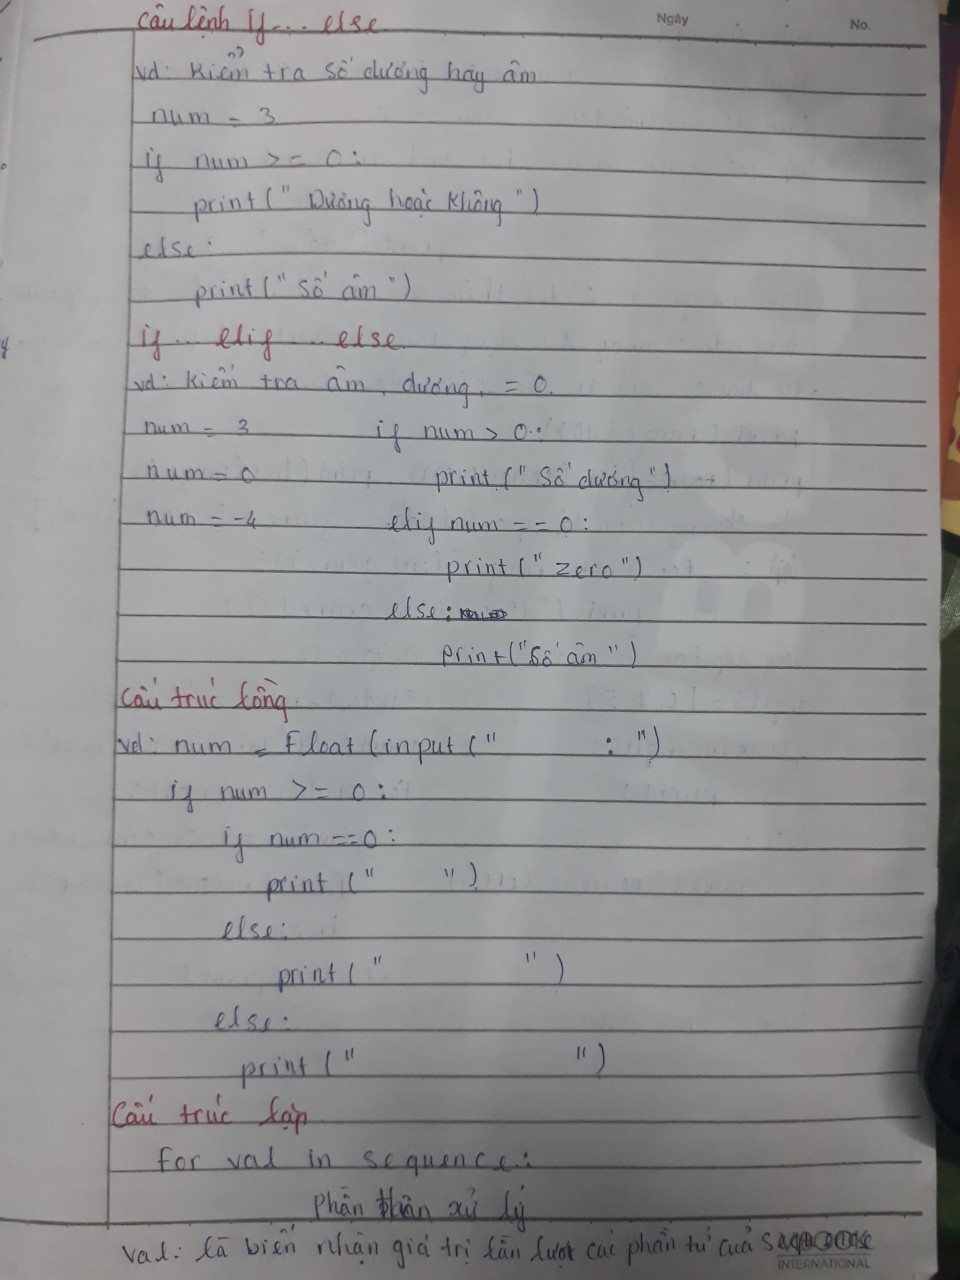 Câu lệnh If... else
Ngày . . No.
vd: Kiểm tra số dương hay âm
num = 3
if num >= 0:
print(" Dương hoặc Không ")
else:
print(" Số âm ")
if... elif... else
vd: Kiểm tra âm, dương, = 0.
num = 3 if num > 0:
num = 0 print (" Số dương ")
num = -4 elif num == 0:
print(" zero ")
else:
print("Số âm ")
Cấu trúc lồng
vd: num = Float (input (" : ")
if num >= 0:
if num ==0:
print (" ")
else:
print (" ")
else:
print (" ")
Cấu trúc lặp
For val in sequence:
Phần thân xử lý
val: là biến nhận giá trị lần lượt các phần tử của
INTERNATIONAL